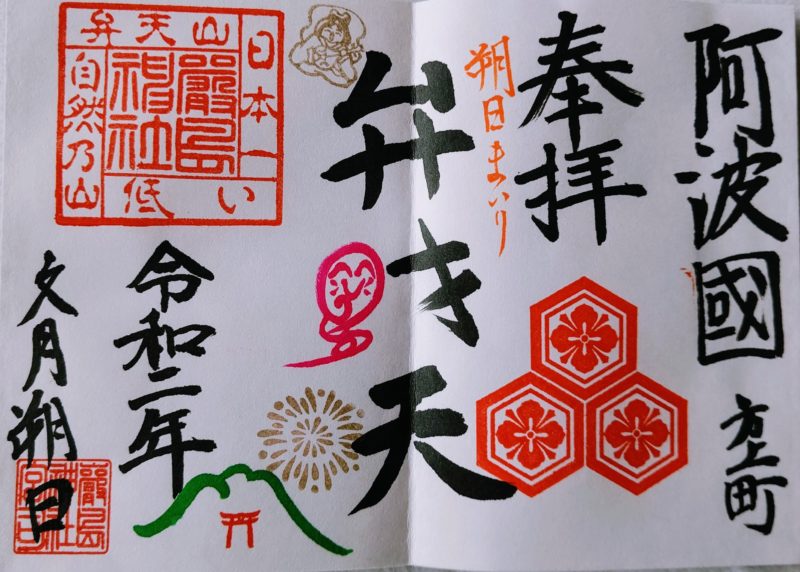 阿波國
方上町
奉拝
朔日まいり
弁才天
日本一
低い
自然乃山
弁天山
嚴島
神社
令和二年
文月朔日
嚴島
神社